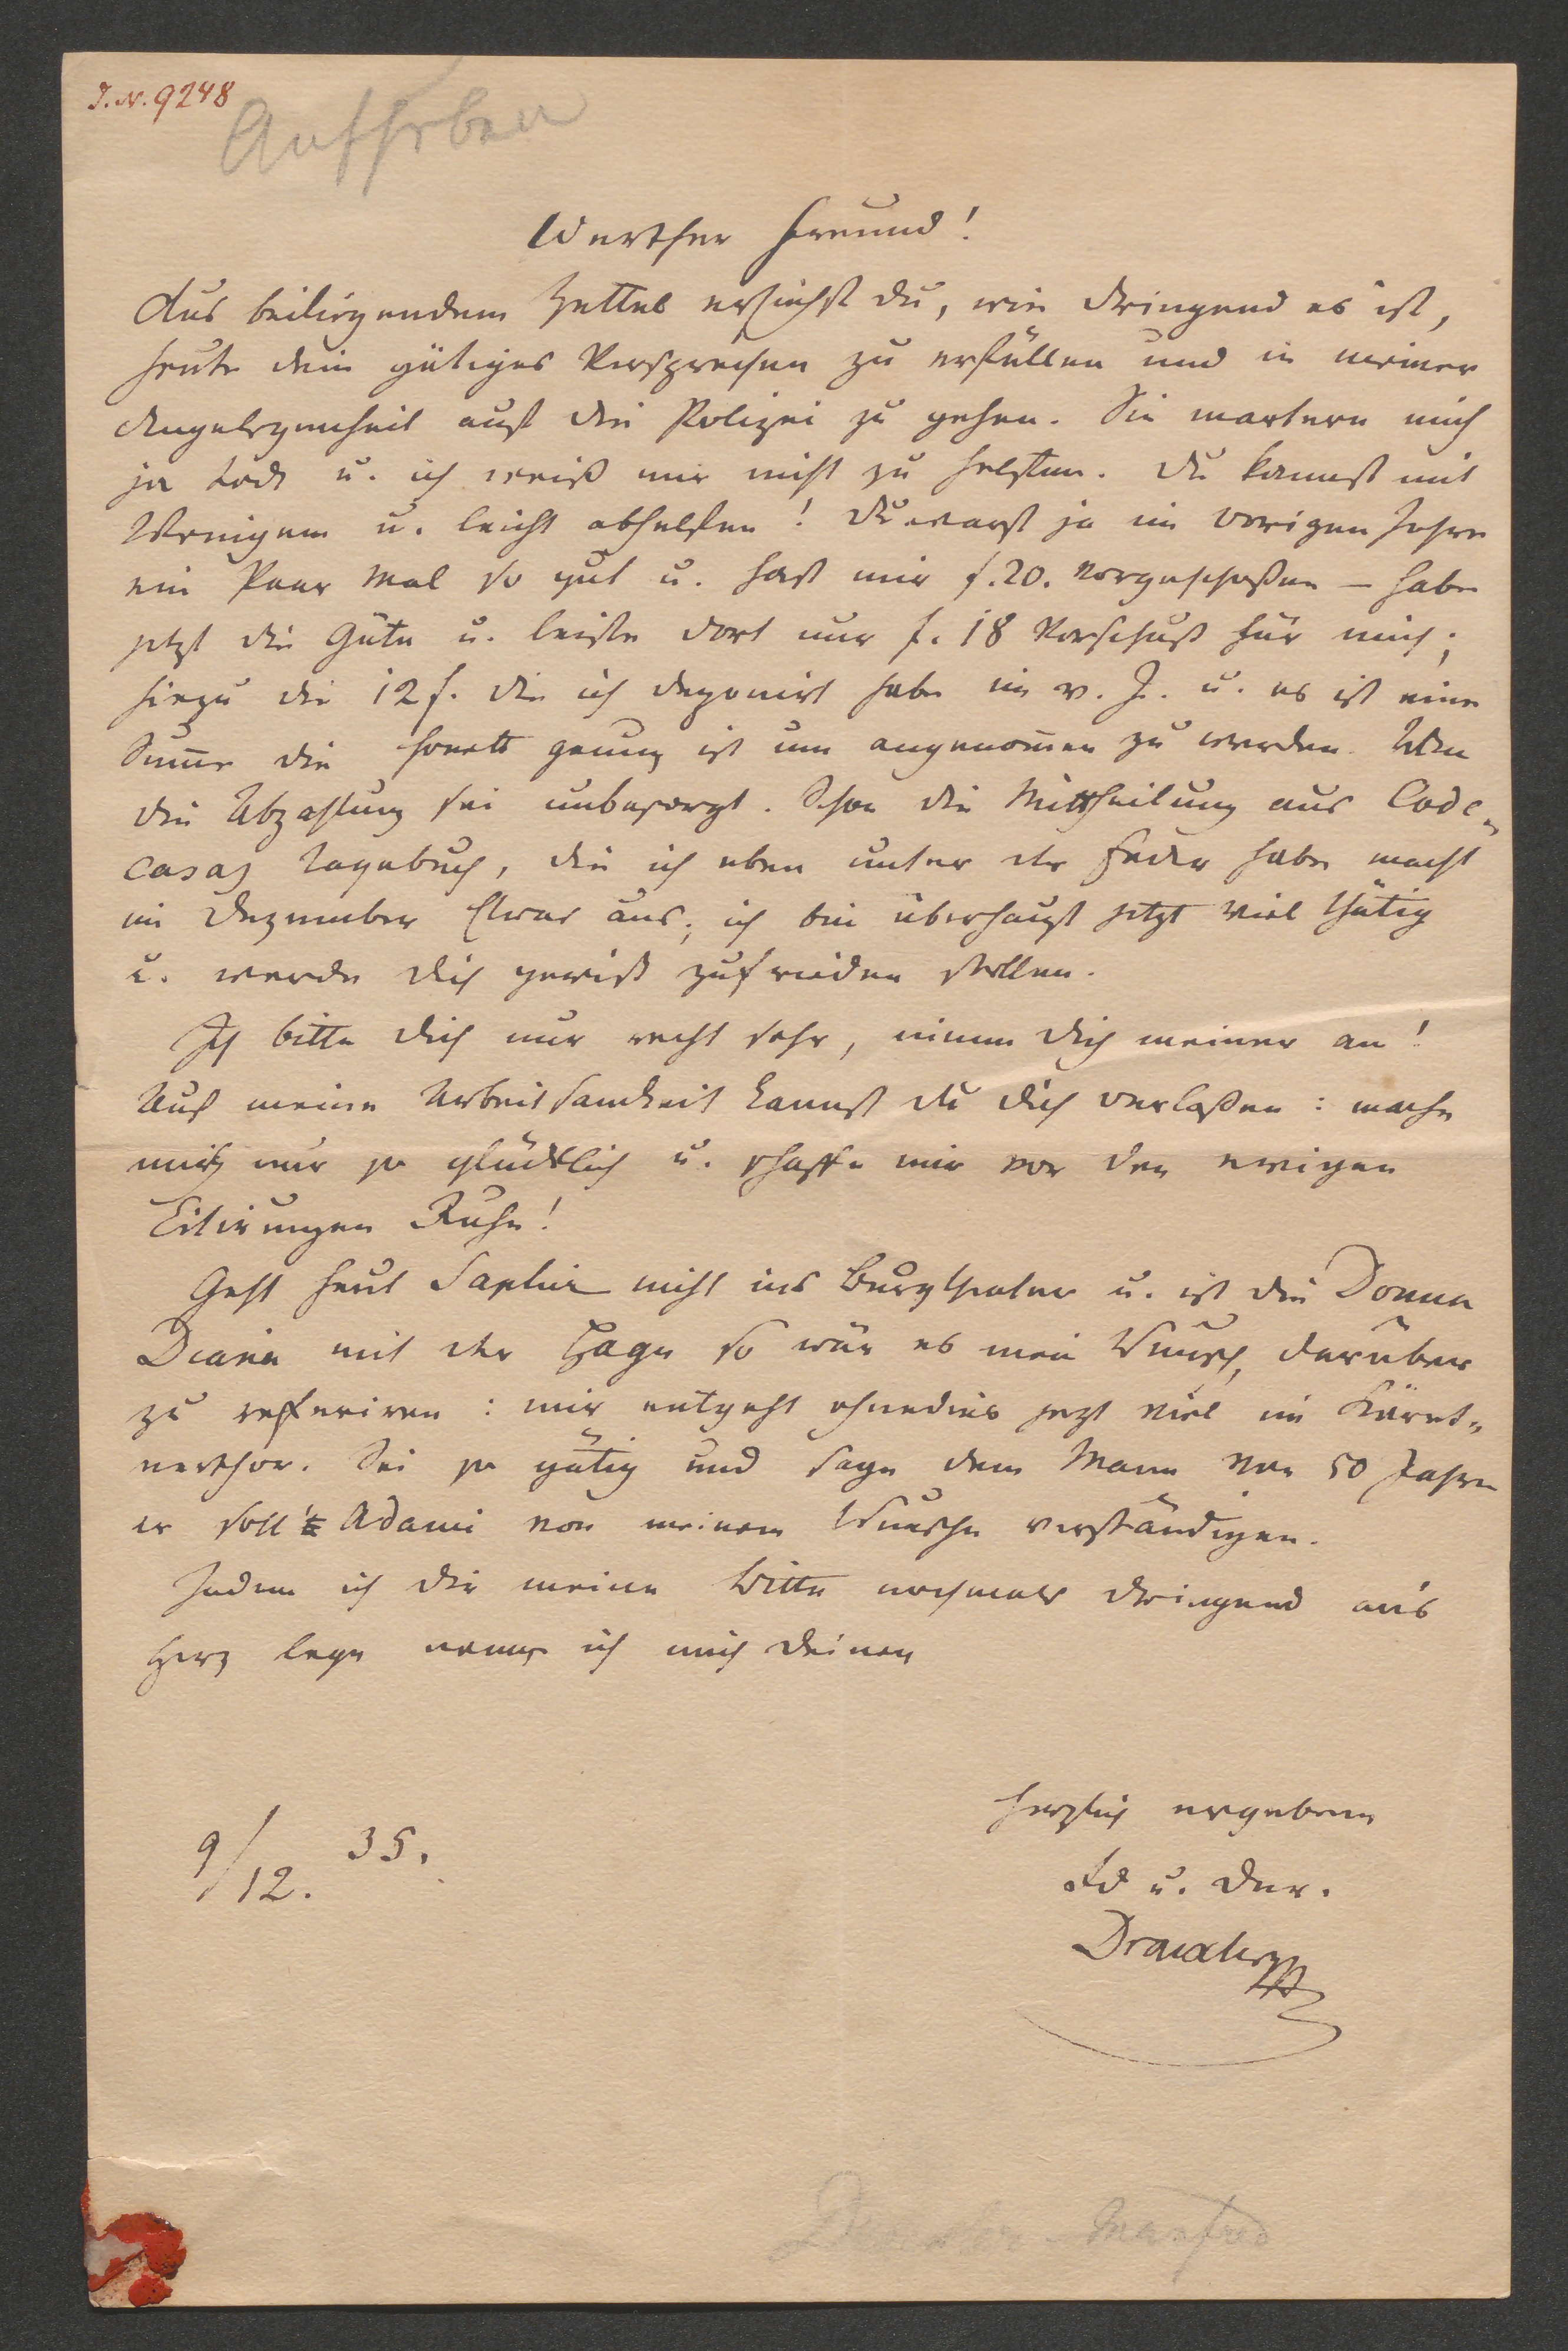 I.N. 9248
Aufheben
Werther Freund!
Aus beiliegendem Zettel ersiehst du, wie dringend es ist,
heute dein gütiges Versprechen zu erfüllen und in meiner
Angelegenheit auf die Polizei zu gehen. Sie martern mich
ja todt u. ich weiß mir nicht zu helfen. Du kannst mit
Wenigem u. leicht abhelfen! Du warst ja im vorigen Jahre
ein Paar Mal so gut u. hast mir f. 20. vorgeschoßen – habe
jetzt die Güte u. leiste dort nur f. 18 Vorschuß für mich;
hiezu die 12 f. die ich deponirt habe im v. J. u. es ist eine
Sum̄e die honett genug ist um angenom̄en zu werden.
die Abzahlung sei unbesorgt. Schon die Mittheilung aus Code-
casas Tagebuch, die ich eben unter der Feder habe macht
im Dezember Etwas aus; ich bin überhaupt jetzt viel thätig
u. werde dich gewiß zufrieden stellen.
Ich bitte dich nur recht sehr, nimm dich meiner an!
Auf meine Arbeitsamkeit kannst du dich verlaßen: mache
mich nur so glücklich u. schaffe mir vor den ewigen
Citirungen Ruhe!
Geht heut Saphir nicht ins Burgtheater u. ist die Donna
Diana mit der Hagn so wär es mein Wunsch, darüber
zu referiren: mir entgeht ohnedies jetzt viel im Kärnt-
nerthor. Sei so gütig und sage dem Mann von 50 Jahren
er soll Adami von meinem Wunsche verständigen.
Indem ich dir meine Bitte nochmals dringend an's
Herz lege nenne ich mich deinen
herzlich ergebenen
Fd u. Dnr.
Draxler
9/12. 35.
Draxler-Manfred